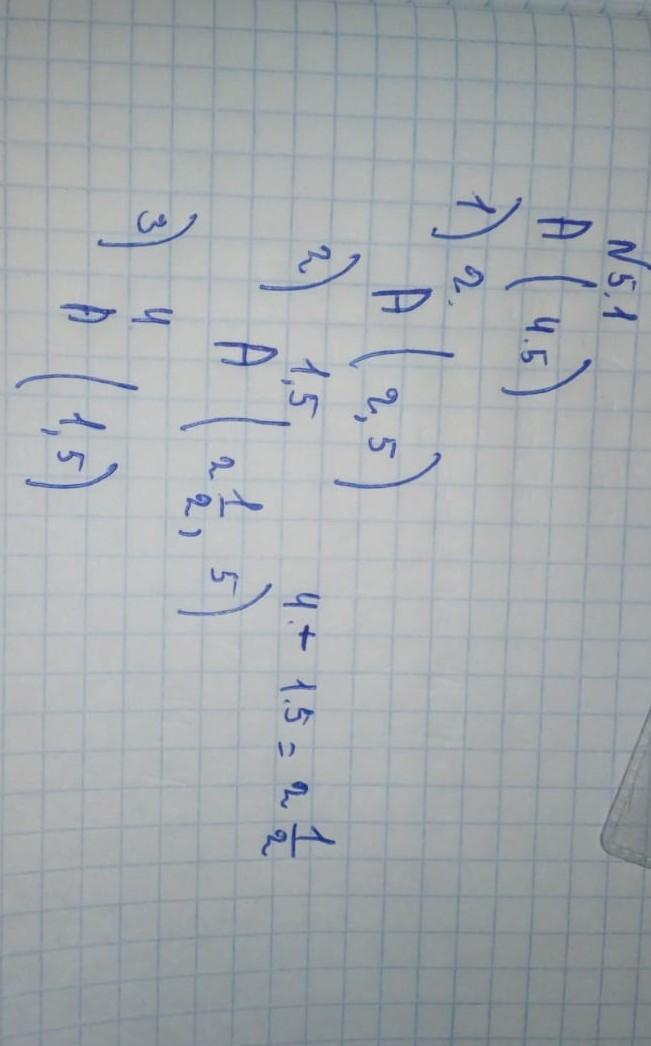 № 5.1
A (4.5)
1) 2.
A (2,5)
2) 1,5
A (2 1/2, 5) 4.+ 1.5 = 2 1/2
3) 4
A (1,5)